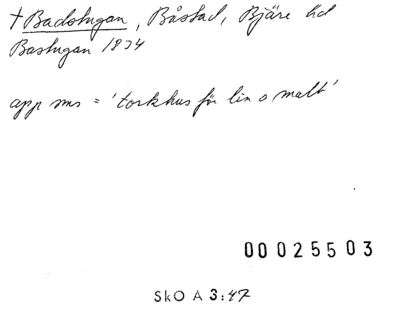 † Badstugan, Båstad, Bjäre hd
Bastugan 1834
app sms = 'torkhus för lin o malt'
00025503
SkO A 3:47